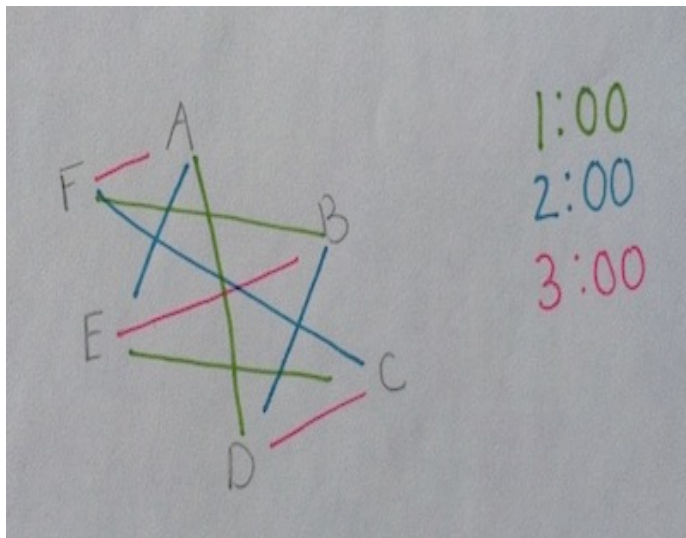 A
F
B
E
C
D
1:00
2:00
3:00